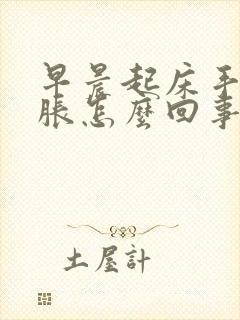 早晨起床手
脹怎麼回事
土屋計